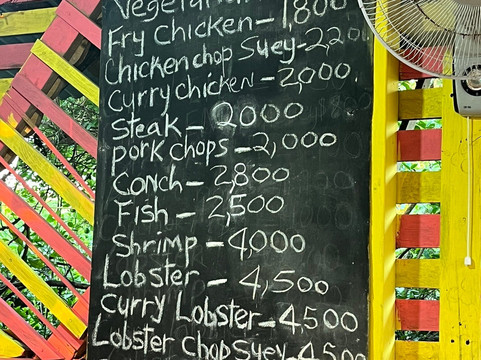 Fry Chicken - 1,800
Chicken chop Suey - 2,200
Curry chicken - 2,000
Steak - 2000
pork chops - 2,000
Conch - 2,800
Fish - 2,500
Shrimp - 4,000
Lobster - 4,500
Curry Lobster - 4,500
Lobster Chop Suey - 4,500